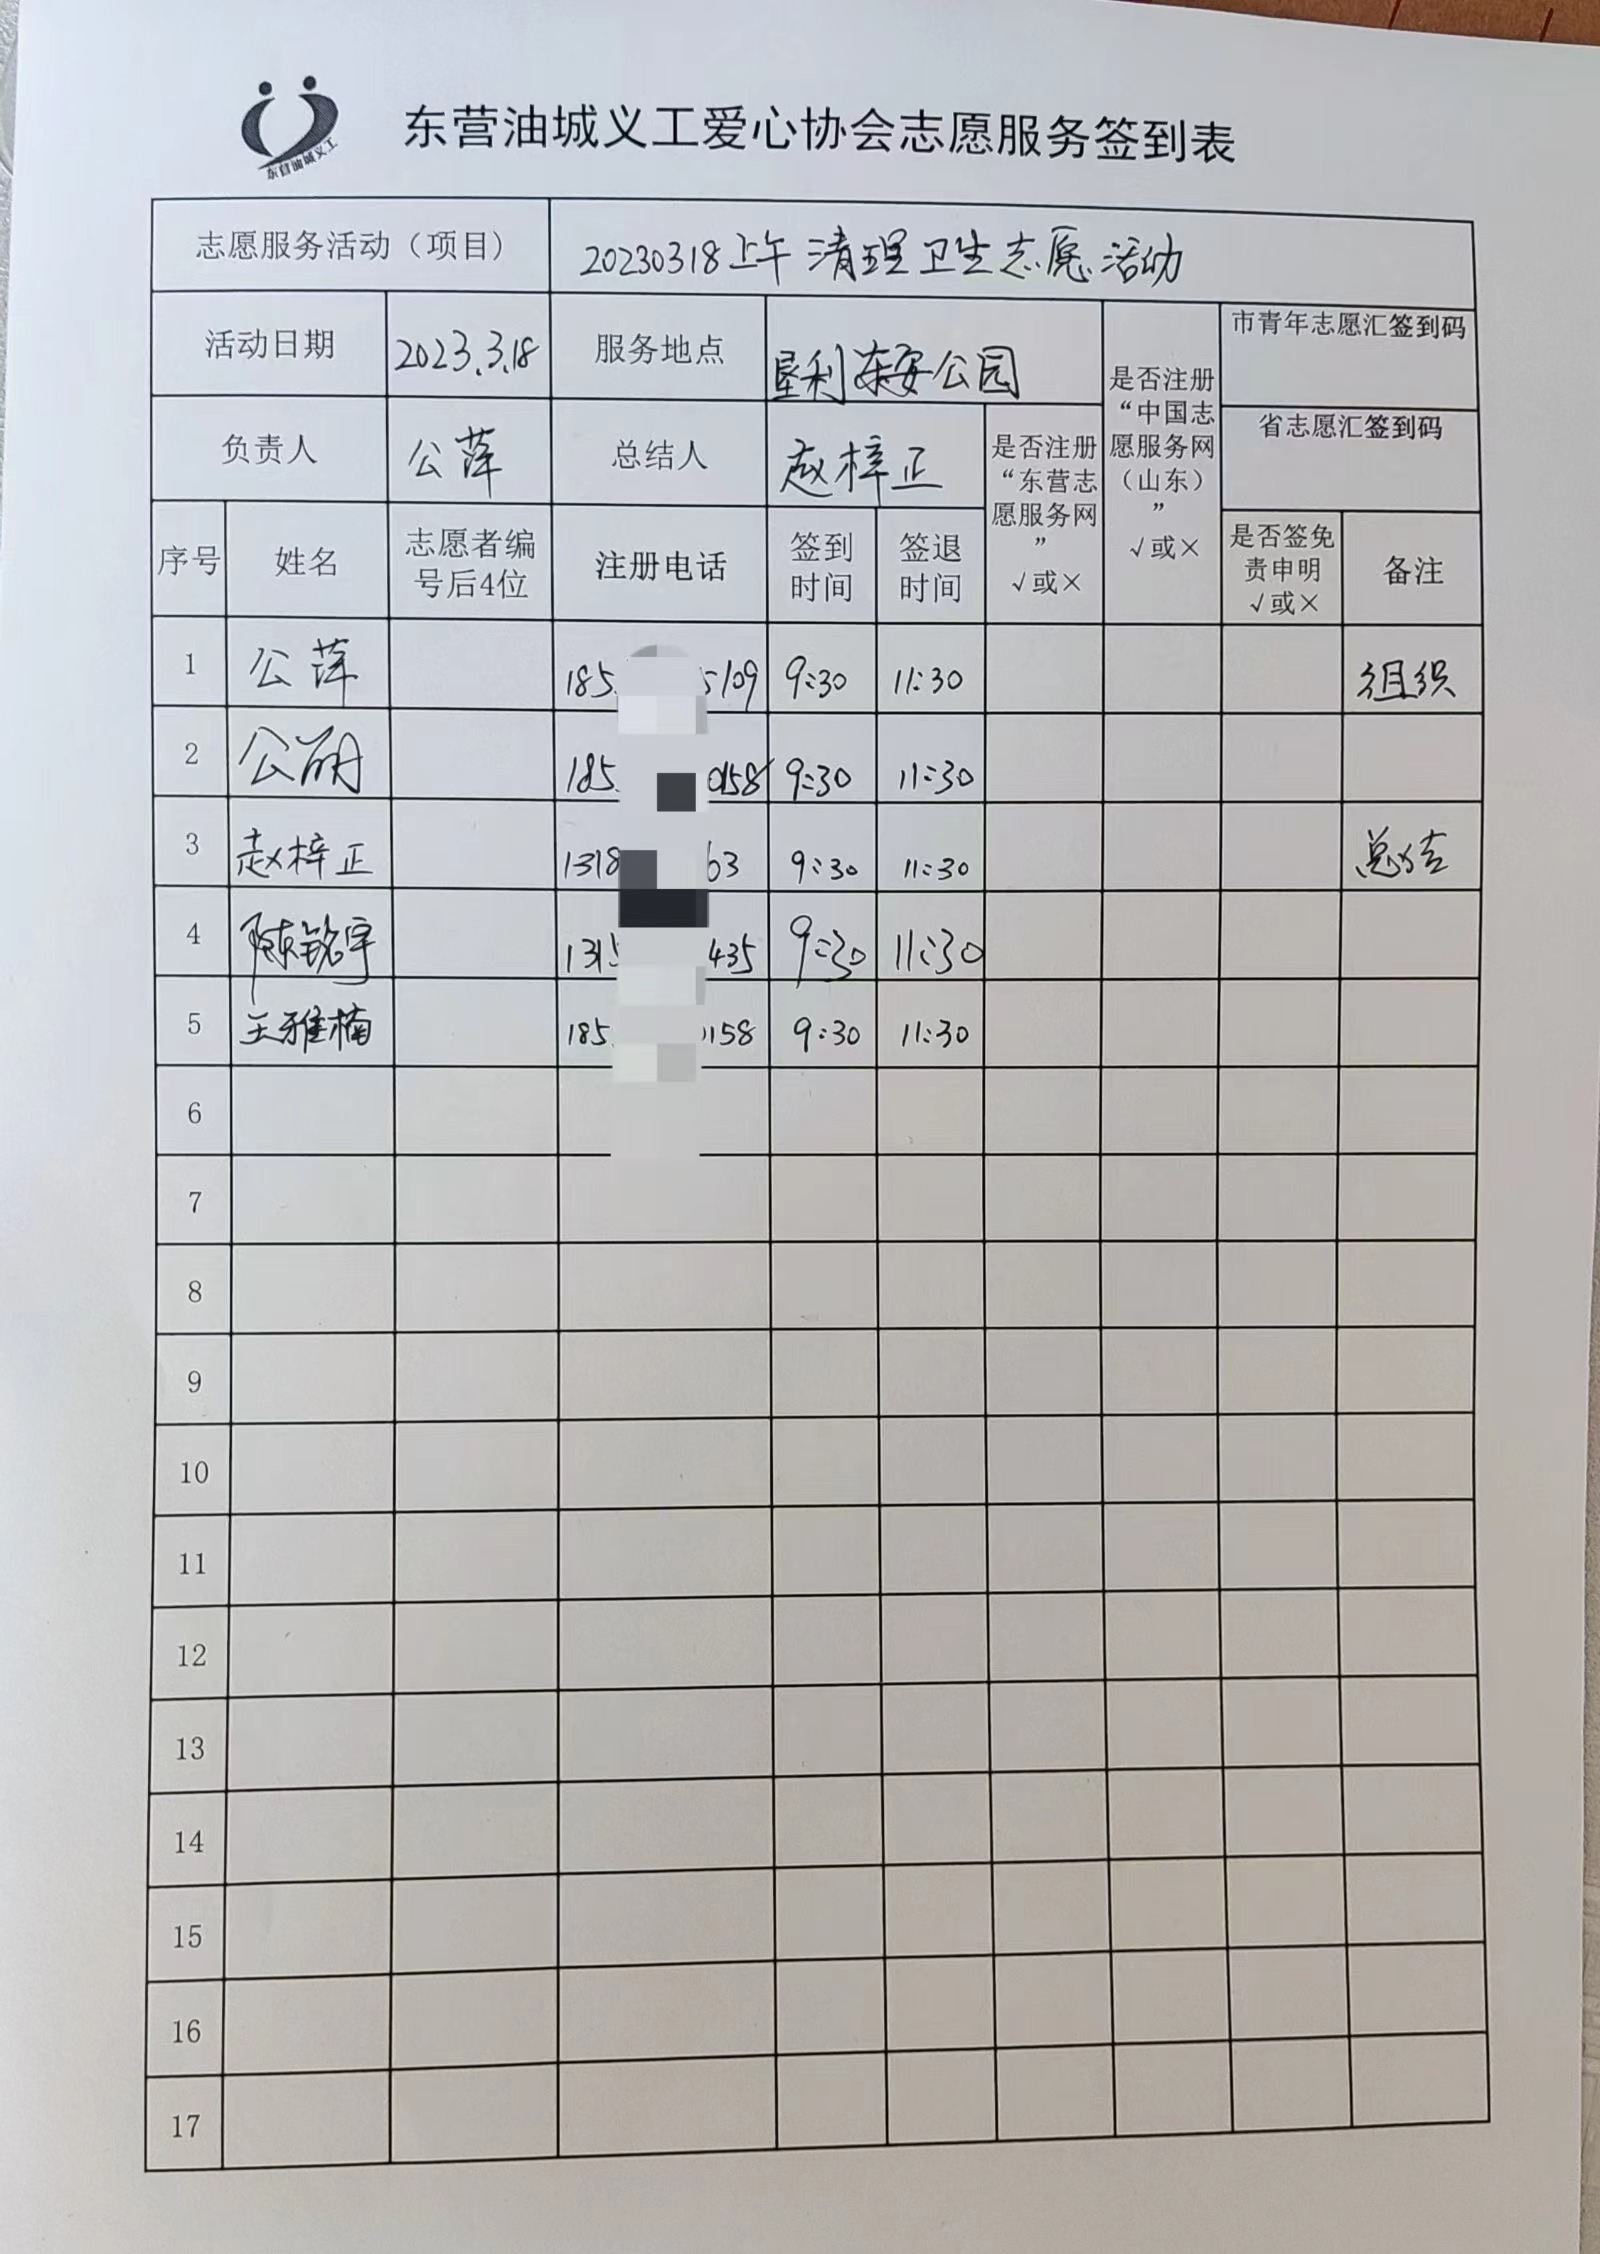 东营油城义工
东营油城义工爱心协会志愿服务签到表
志愿服务活动（项目） 20230318上午清理卫生志愿活动
活动日期 2023.3.18 服务地点 垦利东安公园 是否注册“中国志愿服务网（山东）”√或× 市青年志愿汇签到码
省志愿汇签到码
负责人 公萍 总结人 赵梓正 是否注册“东营志愿服务网”√或×
序号 姓名 志愿者编号后4位 注册电话 签到时间 签退时间 是否签免责申明√或× 备注
1 公萍 185 5109 9:30 11:30 组织
2 公丽 185 0158 9:30 11:30
3 赵梓正 1318 63 9:30 11:30 总结
4 陈铭宇 1315 435 9:30 11:30
5 王雅楠 185 158 9:30 11:30
6
7
8
9
10
11
12
13
14
15
16
17